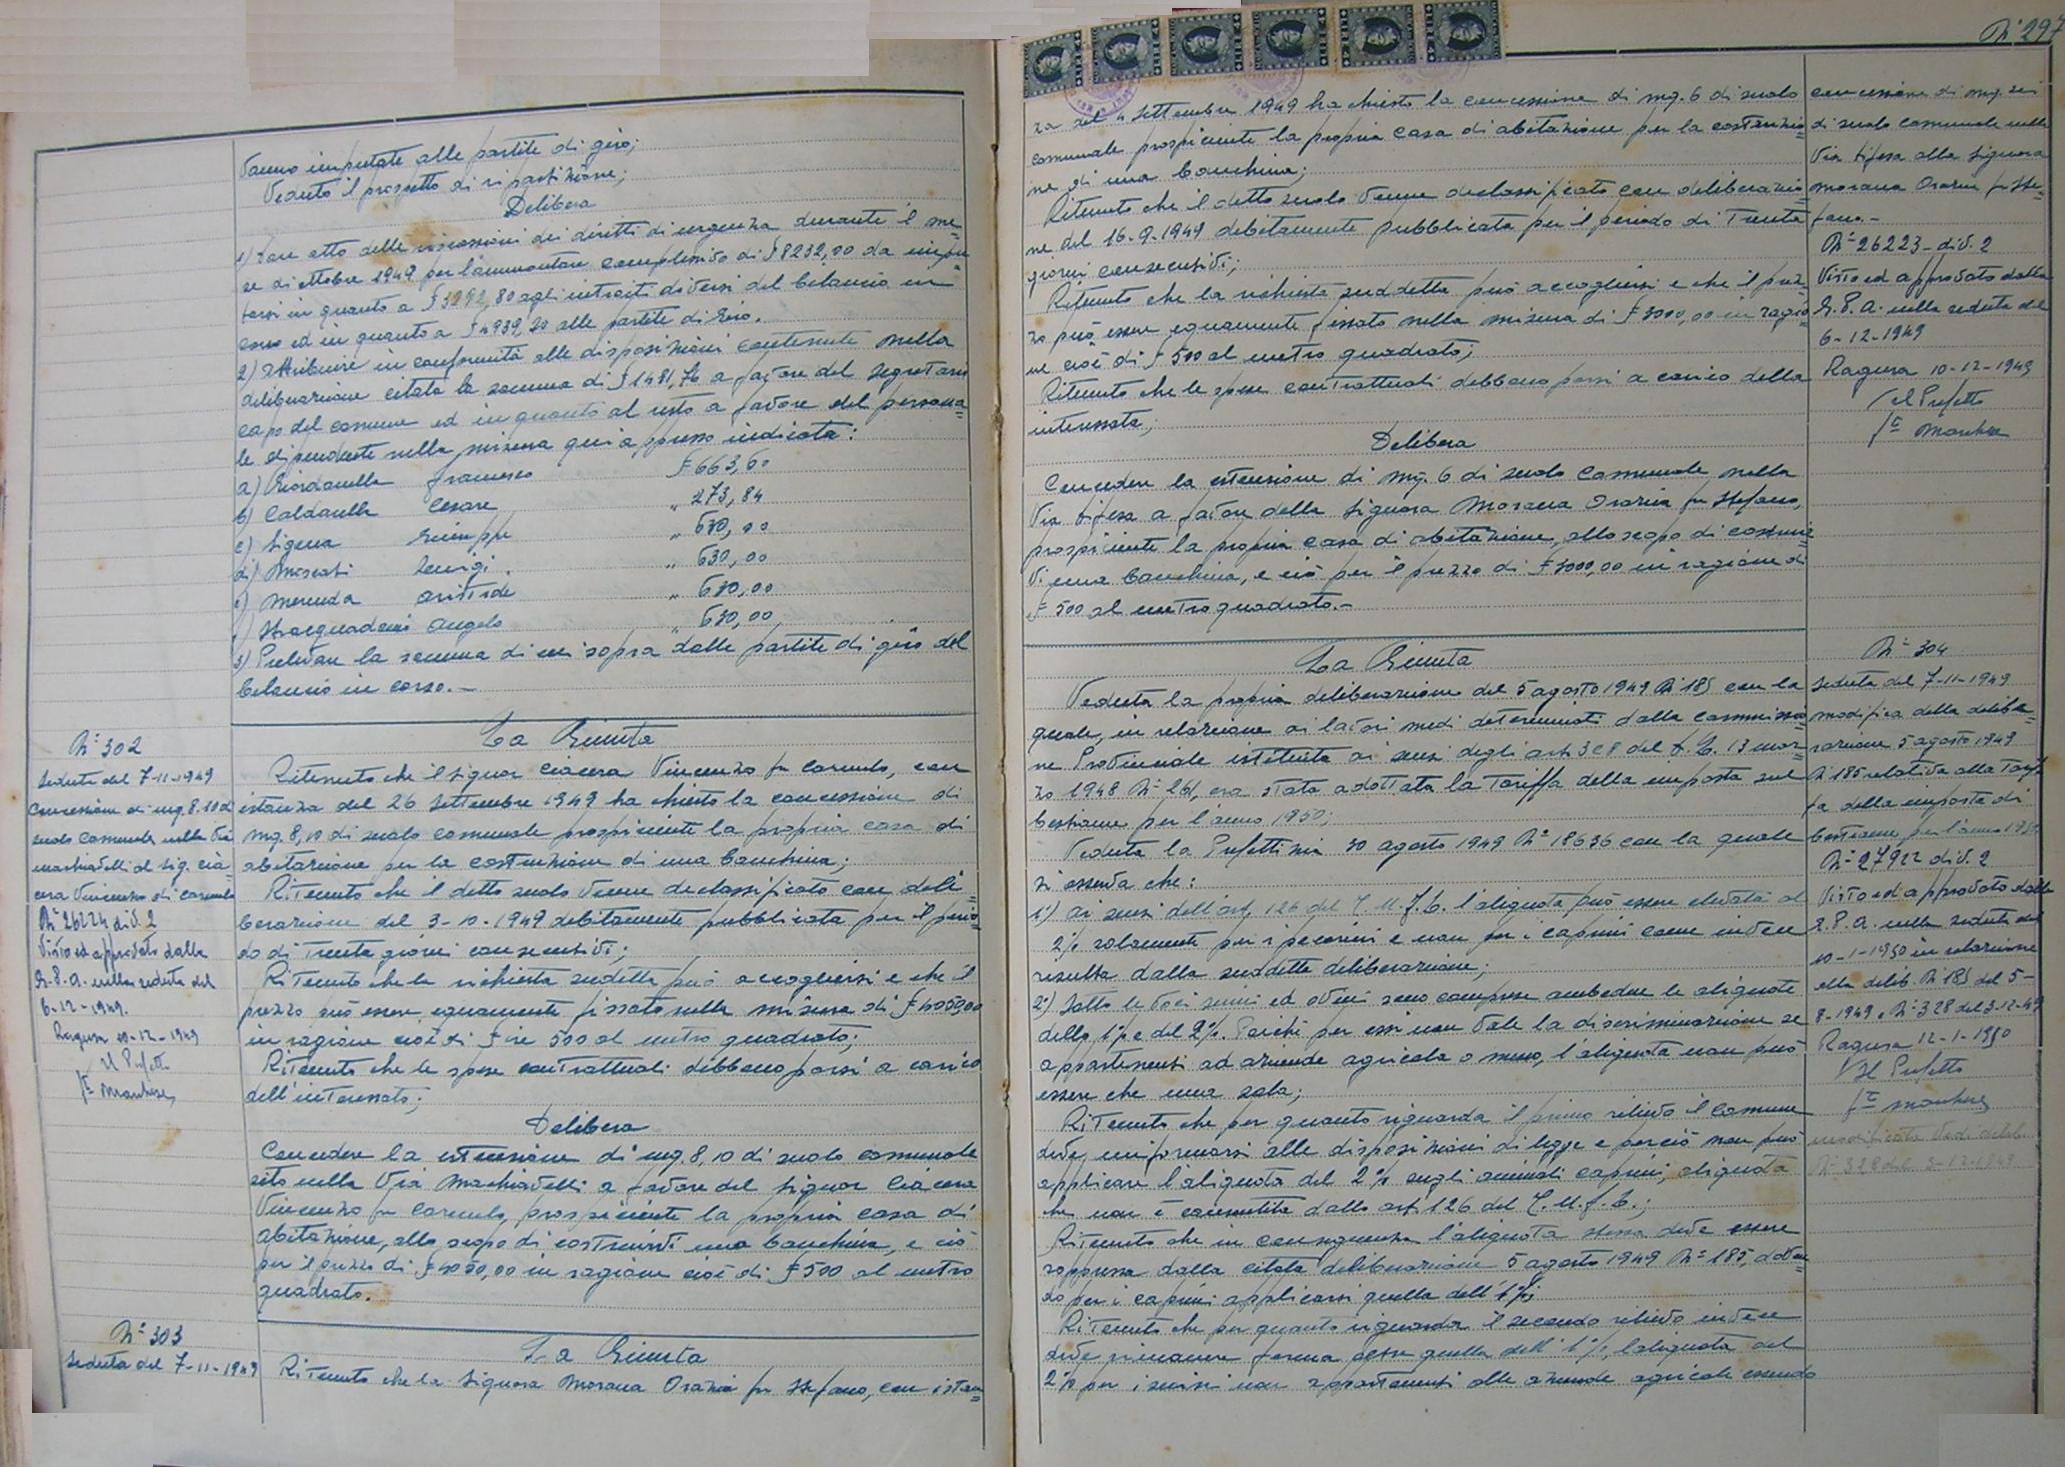 vanno imputate alle partite di giro;
Veduto il prospetto di ripartizione;
Delibera
1) Dare atto delle riscossioni dei diritti di urgenza durante il me=
se di ottobre 1949 per l'ammontare complessivo di £ 8232,00 da impu=
tarsi in quanto a £ 3292,80 agli introiti diversi del bilancio in
corso ed in quanto a £ 4939,20 alle partite di giro.
2) Attribuire in conformità alle disposizioni contenute nella
deliberazione citata la somma di £ 1481,76 a favore del Segretario
capo del comune ed in quanto al resto a favore del persona=
le dipendente nella misura qui appresso indicata:
a) Giordanella Francesco £ 663,60
b) Caldarella Cesare " 273,84
c) Signa Giuseppe " 630,00
d) Moscati Luigi " 630,00
e) Merenda Aristide " 630,00
f) Stracquadaini Angelo " 630,00
3) Prelevare la somma di cui sopra dalle partite di giro del
bilancio in corso.-
N° 302
Seduta del 7-11-1949
Concessione di mq. 8.10 di
suolo comunale nella Via
Machiavelli al Sig. Cia=
cera Vincenzo di Carmelo
N° 26224 div. 2
Visto ed approvato dalla
G.P.A. nella seduta del
6-12-1949.
Ragusa 10-12-1949
Il Prefetto
La Giunta
Ritenuto che il Signor Ciacera Vincenzo fu Carmelo, con
istanza del 26 Settembre 1949 ha chiesto la concessione di
mq. 8,10 di suolo comunale prospiciente la propria casa di
abitazione per la costruzione di una banchina;
Ritenuto che il detto suolo venne declassificato con deli=
berazione del 3-10-1949 debitamente pubblicata per il perio=
do di trenta giorni consecutivi;
Ritenuto che la richiesta sudetta può accogliersi e che il
prezzo può essere equamente fissato nella misura di £ 4050,00
in ragione cioè di lire 500 al metro quadrato;
Ritenuto che le spese contrattuali debbono porsi a carico
dell'interessato;
Delibera
Concedere la estensione di mq. 8,10 di suolo comunale
sito nella Via Machiavelli a favore del Signor Ciacera
Vincenzo fu Carmelo, prospiciente la propria casa di
abitazione, allo scopo di costruirvi una banchina, e ciò
per il prezzo di £ 4050,00 in ragione cioè di £ 500 al metro
quadrato.
N° 303
Seduta del 7-11-1949
La Giunta
Ritenuto che la Signora Morana Orazia fu Stefano, con istan=
N° 297
za del 4 Settembre 1949 ha chiesto la concessione di mq. 6 di suolo
comunale prospiciente la propria casa di abitazione per la costruzio=
ne di una banchina;
Ritenuto che il detto suolo venne declassificato con deliberazio=
ne del 16-9-1949 debitamente pubblicata per il periodo di trenta
giorni consecutivi;
Ritenuto che la richiesta suddetta può accogliersi e che il prez=
zo può essere equamente fissato nella misura di £ 3000,00 in ragio=
ne cioè di £ 500 al metro quadrato;
Ritenuto che le spese contrattuali debbono porsi a carico della
interessata;
Delibera
Concedere la estensione di mq. 6 di suolo comunale nella
Via a favore della Signora Morana Orazia fu Stefano,
prospiciente la propria casa di abitazione, allo scopo di costruir=
vi una banchina, e ciò per il prezzo di £ 3000,00 in ragione di
£ 500 al metro quadrato.-
concessione di mq. sei
di suolo comunale nella
Via alla Signora
Morana Orazia fu Ste=
fano.-
N° 26223 - div. 2
Visto ed approvato dalla
G.P.A. nella seduta del
6-12-1949
Ragusa 10-12-1949
Il Prefetto
La Giunta
Veduta la propria deliberazione del 5 agosto 1949 N° 185 con la
quale, in relazione ai valori medi determinati dalla commissio=
ne Provinciale istituita ai sensi degli art. 3 e 8 del D.L. 13 mar=
zo 1948 N° 261, era stata adottata la tariffa della imposta sul
bestiame per l'anno 1950;
Veduta la Prefettizia 30 agosto 1949 N° 18636 con la quale
si osserva che:
1°) Ai sensi dell'art. 126 del T.U.F.L. l'aliquota può essere elevata al
2% solamente per i pecorini e non per i caprini come invece
risulta dalla suddetta deliberazione;
2°) Sotto le voci suini ed ovini sono comprese ambedue le aliquote
dello 1% e del 2%. Poichè per essi non vale la discriminazione se
appartenenti ad aziende agricole o meno, l'aliquota non può
essere che una sola;
Ritenuto che per quanto riguarda il primo rilievo il Comune
deve uniformarsi alle disposizioni di legge e perciò non può
applicare l'aliquota del 2% sugli animali caprini, aliquota
che non è consentita dallo art. 126 del T.U.F.L.;
Ritenuto che in conseguenza l'aliquota stessa deve essere
soppressa dalla citata deliberazione 5 agosto 1949 N° 185, doven=
do per i caprini applicarsi quella dell'1%;
Ritenuto che per quanto riguarda il secondo rilievo invece
deve rimanere ferma quella dell'1%, l'aliquota del
2% per i suini non appartenenti alle aziende agricole essendo
N° 304
Seduta del 7-11-1949
Modifica della delibe=
razione 5 agosto 1949
N° 185 relativa alla tarif=
fa della imposta di
bestiame per l'anno 1950
N° 27922 div. 2
Visto ed approvato dalla
G.P.A. nella seduta del
10-1-1950 in relazione
alla delib. N° 185 del 5-
8-1949 e N° 328 del 3-12-49
Ragusa 12-1-1950
Il Prefetto
modificata vedi delib.
N° 328 del 3-12-1949